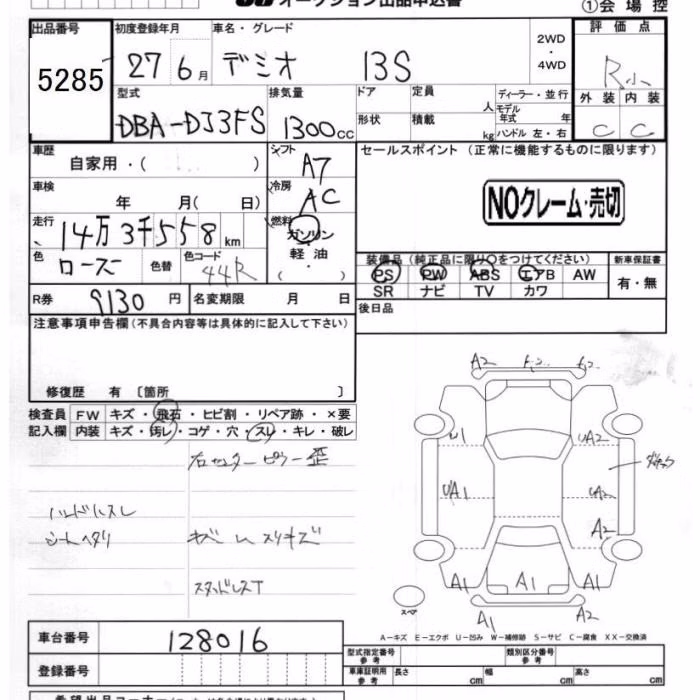 オークション出品申込書
①会場控
出品番号
5285
初度登録年月
27 6月
車名・グレード
デミオ 13S
2WD
・
4WD
評価点
R小
外装 内装
C C
型式
DBA-DJ3FS
排気量
1300cc
ドア
形状
定員
人
積載
kg
ディーラー・並行
モデル年式 年
ハンドル 左・右
車歴
自家用・( )
シフト
A7
車検
年 月( 日)
冷房
AC
走行
14万3千558km
燃料
ガソリン
・
軽油
( )
色
ローズ
色替
色コード
44R
R券 9130円
名変期限 月 日
セールスポイント (正常に機能するものに限ります)
NOクレーム・売切
装備品 (純正品に限り○をつけてください)
PS PW ABS エアB AW
SR ナビ TV カワ
新車保証書
有・無
後日品
注意事項申告欄(不具合内容等は具体的に記入して下さい)
修復歴 有 〔箇所 〕
検査員記入欄
FW キズ・飛石・ヒビ割・リペア跡・×要
内装 キズ・汚レ・コゲ・穴・スレ・キレ・破レ
右センターピラー歪
ハンドルスレ
シートヘタリ
スタッドレスT
A2
U1 UA2
UA1 UA2
A2
A1 A1 A1
スペア
A1 A2
A-キズ E-エクボ U-凹み W-補修跡 S-サビ C-腐食 XX-交換済
車台番号 128016
登録番号
型式指定番号 参考
類別区分番号 参考
車庫証明用 参考
長さ cm 幅 cm 高さ cm